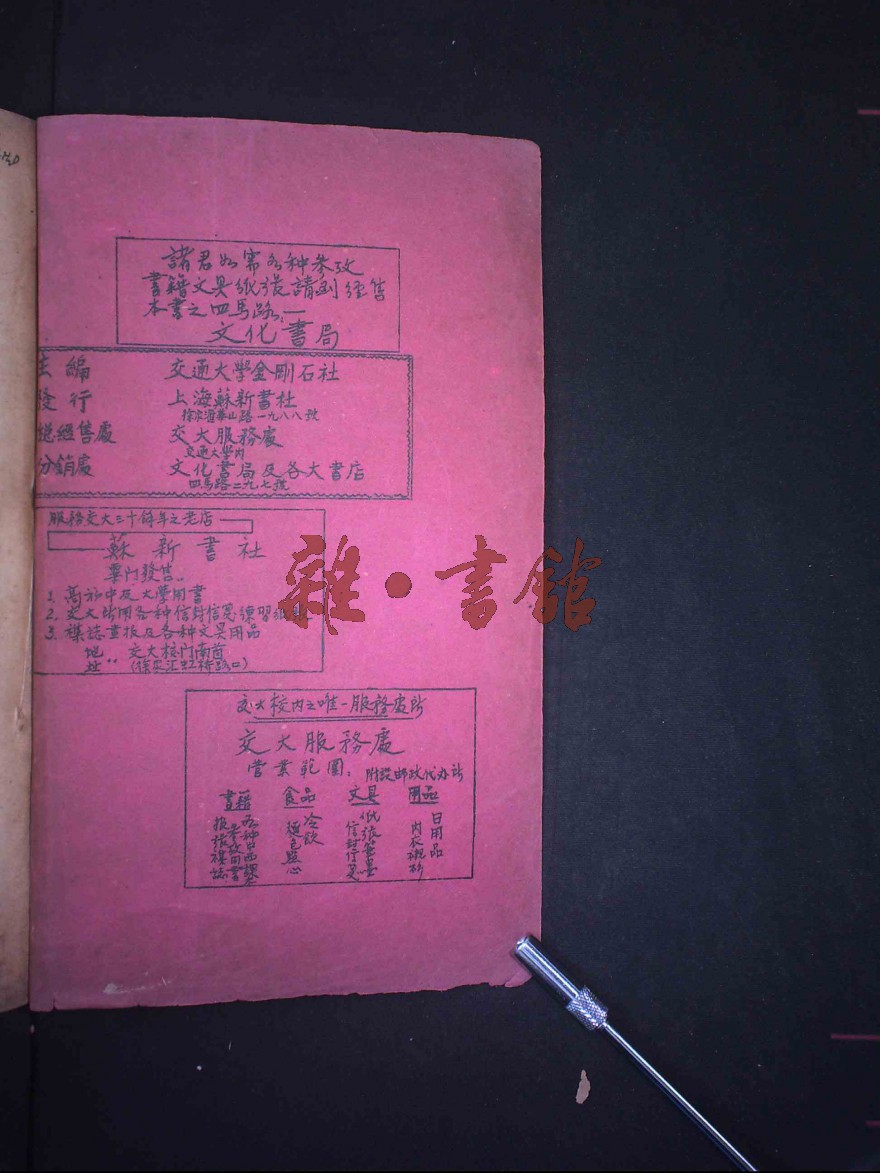 諸君如需各种参攷
書籍文具紙張請到經售
本書之四馬路:—
文化書局
主編 交通大學金剛石社
發行 上海蘇新書社
徐家滙華山路一九八八號
總經售處 交大服務處
交通大學內
分銷處 文化書局及各大書店
四馬路二九七號
服務交大三十餘年之老店
蘇新書社
專門發售..
1. 高初中及大學用書
2. 交大所用各种信封信箋練習紙張
3. 襍誌畫报及各种文具用品
地址“ 交大校門南首
(徐家汇虹桥路口)
交大校内之唯一服務處所
交大服務處
营業範圍: 附設邮政代办所
書籍 食品 文具 用品
各种中西課本
參攷用書
报張襍誌
冷飲
麵包點心
紙張筆墨
信封信箋
日用品
内衣襯衫
雜·書館